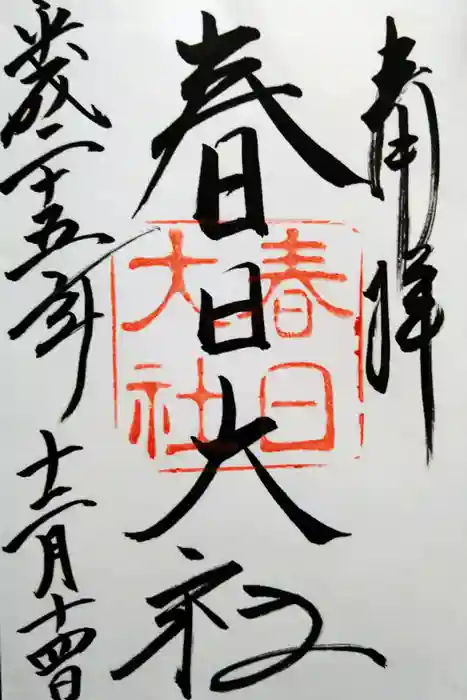 奉拝
春日大社
春日
大社
平成二十五年
十二月十四日